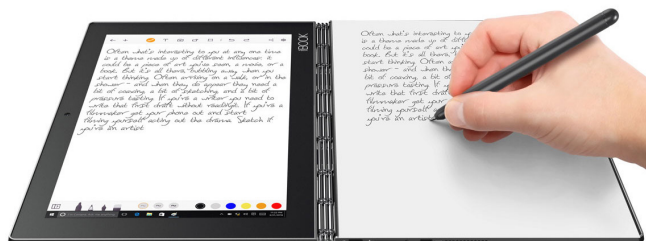 Often what's interesting to you at any one time
is a theme made up of different influences: it
could be a piece of art you've seen, a movie or a
book. But it's all there, bubbling away when you
start thinking. Often arriving on a walk, or in the
shower - and when they do appear they need a
bit of coaxing, a bit of sketching and a bit of
pressure testing. If you're a writer you need to
write that first draft without reading. If you're a
filmmaker get your phone out and start
filming yourself acting out the drama. Sketch if
you're an artist
BOOK
Often what's interesting to you
is a theme made up of different
could be a piece of art
book. But it's all there
start thinking. Often
shower - and when the
bit of coaxing, a bit of
pressure testing. If
write that first draft
filmmaker get your
filming yourself
you're an artist